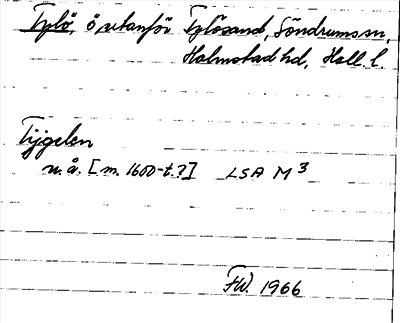 Tylö, ö utanför Tylösand, Söndrums sn,
Halmstad hd, Hall. l.
Tijgelen
u.å. [m. 1600-t.?] LSA M 3
FW. 1966